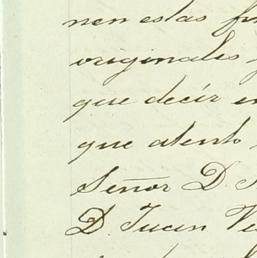 nen estas
originales
que decir en
que atento
Señor D.
D. Juan